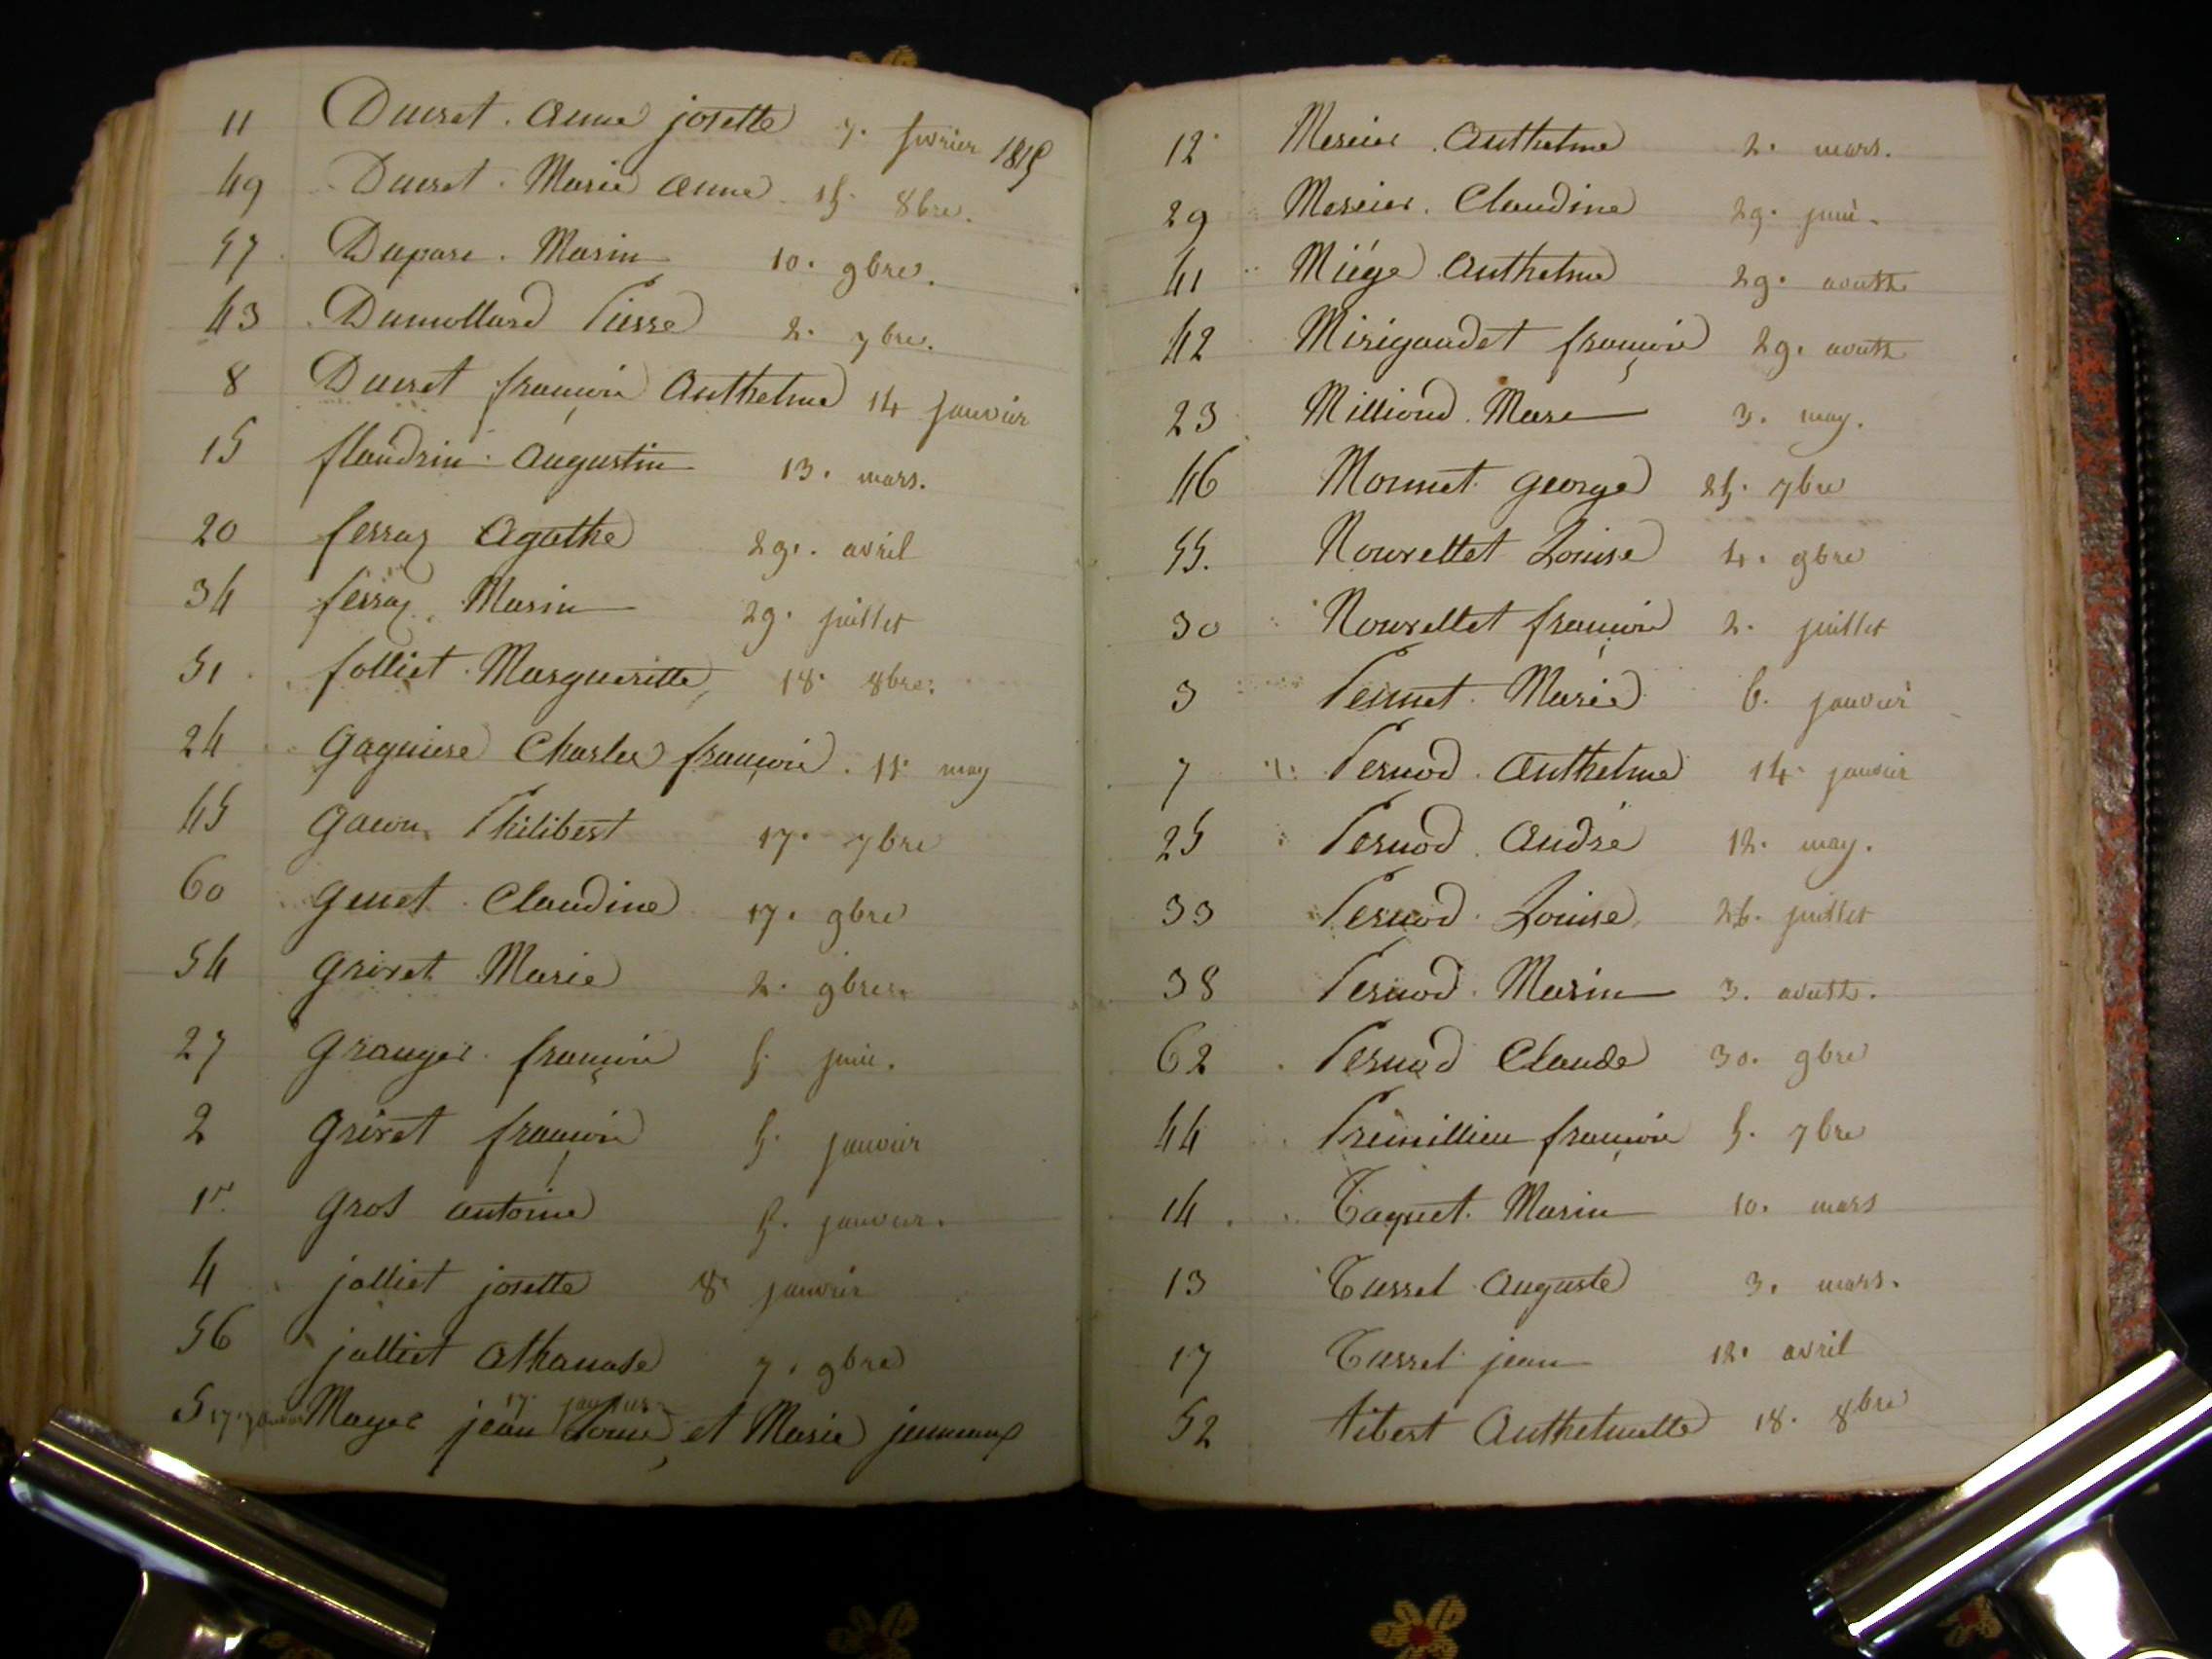 11 Ducret . Anne josette 7. fevrier 1815
49 Ducret . Marie Anne . 15. 8bre.
57 Duparc . Marin 10. 9bre.
43 Dumollard Pierre 2. 7bre.
8 Ducret françois Anthelme 14 janvier
15 flandrin . Augustin 13. mars.
20 ferraz Agathe 29. avril
34 ferraz . Marin 29. juillet
51 folliet . Margueritte 18. 8bre.
24 Gagniere Charles françois . 11. may
45 Philibert 17. 7bre
60 Genet . Claudine 17. 9bre
54 Griret Marie 2. 9bre.
27 Granger . françois 5. juin.
2 Griret françois 5. janvier
1er. Gros antoine 5. janvier.
4 jolliet josette 8. janvier
56 jolliet Athanase 7. 9bre
17 janvier
5 17 janvier Mager jean Louis et Marie jumeaux
12 Mercier . Anthelme 2. mars.
29 Mercier . Claudine 29. juin.
41 Miége Anthelme 29. aoust
42 Mirigaudet françois 29. aoust
23 Milliond . Marc 3. may.
46 Monnet George 25. 7bre
55. Nourellet Louise 4. 9bre
30 Nourellet françois 2. juillet
3 Pernet . Marie 6. janvier
7 Pernod . Anthelme 14. janvier
25 Pernod . André 12. may.
33 Pernod . Louise 26. juillet
38 Pernod . Marin 3. aoust.
62 Pernod Claude 30. 9bre
44 Prémillieu françois 5. 7bre
14 Taquet . Marin 10. mars
13 Tussel Auguste 3. mars.
17 Tussel jean 12. avril
52 tibert Anthelmette 18. 8bre